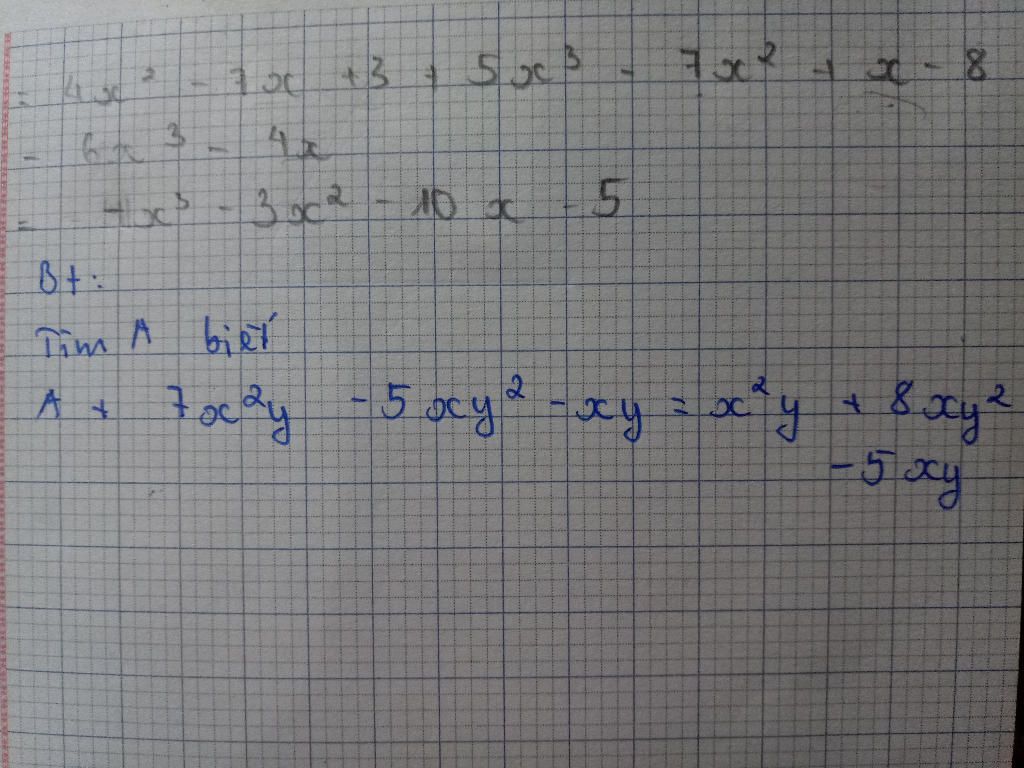 = 4x² - 7x + 3 + 5x³ - 7x² + x - 8
- 6x³ - 4x
= - x³ - 3x² - 10x - 5
Bt:
Tìm A biết
A + 7x²y - 5xy² - xy = x²y + 8xy²
- 5xy